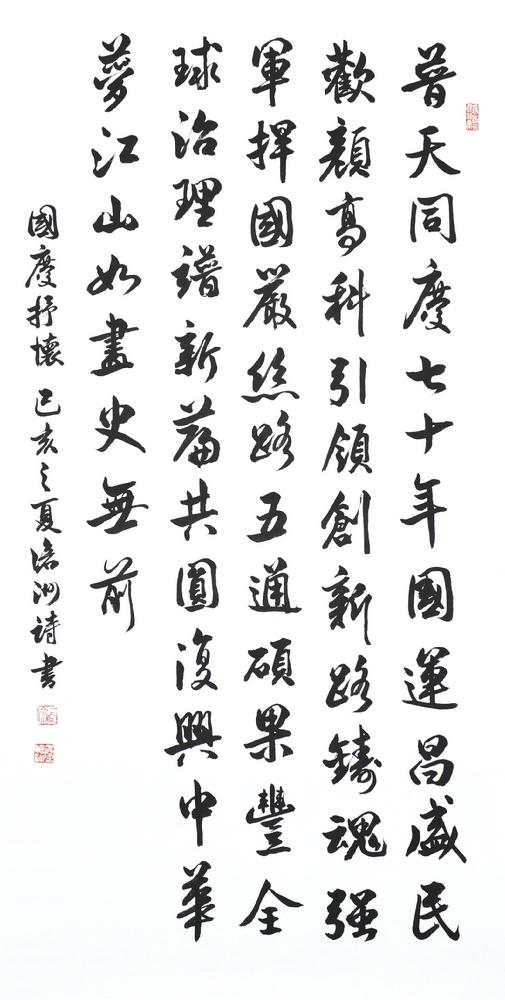 普天同慶七十年國運昌盛民
歡顏高科引領創新路鑄魂强
軍捍國嚴絲路五通碩果豐全
球治理譜新篇共圓復興中華
夢江山如畫史無前
國慶抒懷 己亥之夏 洲詩書